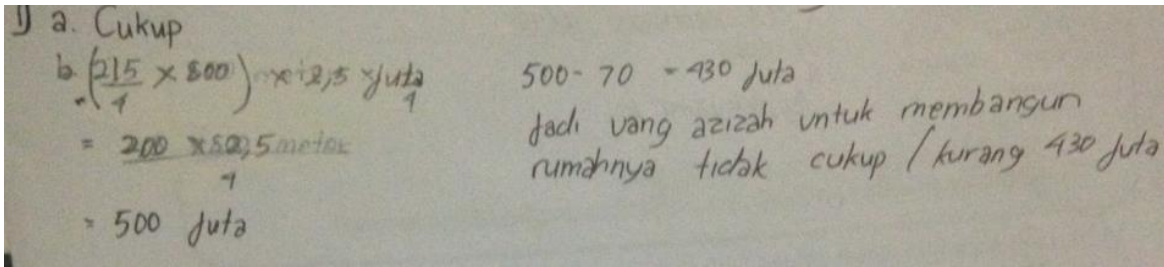 1) a. Cukup
b. (215/4 × 800) × 2,5 juta
= 200 × 2,5 /4
= 500 Juta
500 - 70 = 430 Juta
Jadi uang azizah untuk membangun
rumahnya tidak cukup / kurang 430 Juta